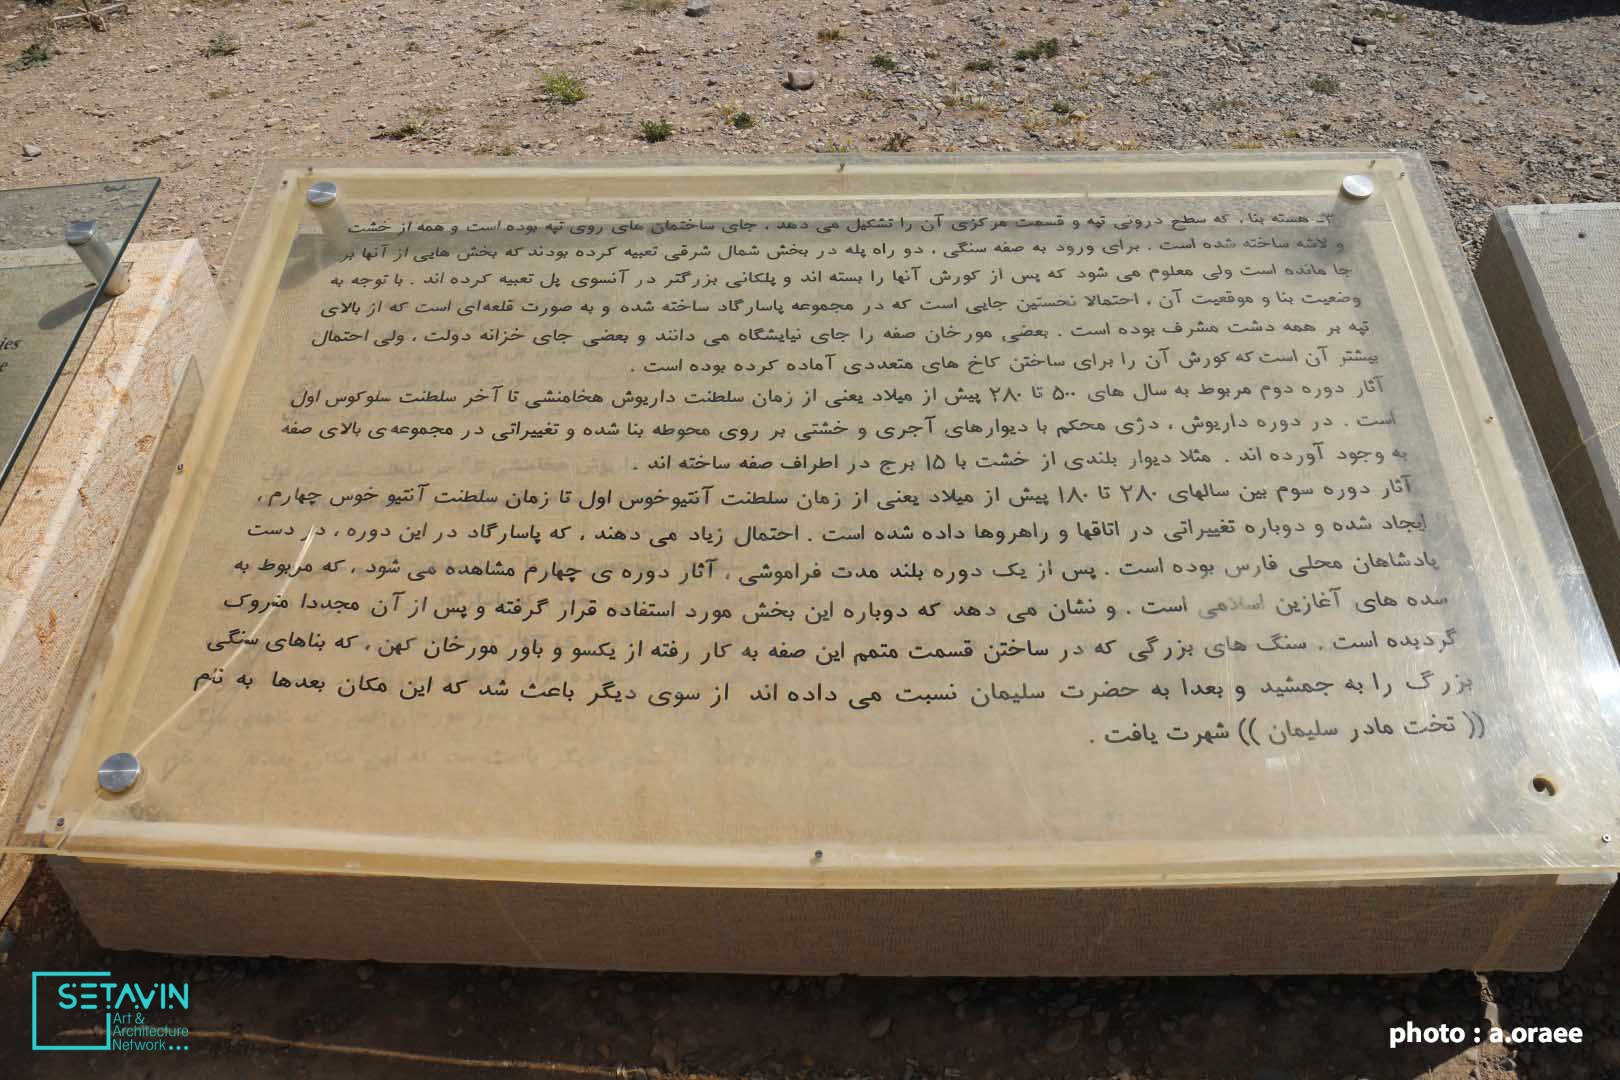 ۳ـ هسته بنا ، که سطح درونی تپه و قسمت مرکزی آن را تشکیل می دهد ، جای ساختمان های روی تپه بوده است و همه از خشت
و لاشه ساخته شده است . برای ورود به صفه سنگی ، دو راه پله در بخش شمال شرقی تعبیه کرده بودند که بخش هایی از آنها بر
جا مانده است ولی معلوم می شود که پس از کورش آنها را بسته اند و پلکانی بزرگتر در آنسوی پل تعبیه کرده اند . با توجه به
وضعیت بنا و موقعیت آن ، احتمالا نخستین جایی است که در مجموعه پاسارگاد ساخته شده و به صورت قلعه‌ای است که از بالای
تپه بر همه دشت مشرف بوده است . بعضی مورخان صفه را جای نیایشگاه می دانند و بعضی جای خزانه دولت ، ولی احتمال
بیشتر آن است که کورش آن را برای ساختن کاخ های متعددی آماده کرده بوده است .
آثار دوره دوم مربوط به سال های ۵۰۰ تا ۲۸۰ پیش از میلاد یعنی از زمان سلطنت داریوش هخامنشی تا آخر سلطنت سلوکوس اول
است . در دوره داریوش ، دژی محکم با دیوارهای آجری و خشتی بر روی محوطه بنا شده و تغییراتی در مجموعه‌ی بالای صفه
به وجود آورده اند . مثلا دیوار بلندی از خشت با ۱۵ برج در اطراف صفه ساخته اند .
آثار دوره سوم بین سالهای ۲۸۰ تا ۱۸۰ پیش از میلاد یعنی از زمان سلطنت آنتیوخوس اول تا زمان سلطنت آنتیو خوس چهارم ،
ایجاد شده و دوباره تغییراتی در اتاقها و راهروها داده شده است . احتمال زیاد می دهند ، که پاسارگاد در این دوره ، در دست
پادشاهان محلی فارس بوده است . پس از یک دوره بلند مدت فراموشی ، آثار دوره ی چهارم مشاهده می شود ، که مربوط به
سده های آغازین اسلامی است . و نشان می دهد که دوباره این بخش مورد استفاده قرار گرفته و پس از آن مجددا متروک
گردیده است . سنگ های بزرگی که در ساختن قسمت متمم این صفه به کار رفته از یکسو و باور مورخان کهن ، که بناهای سنگی
بزرگ را به جمشید و بعدا به حضرت سلیمان نسبت می داده اند از سوی دیگر باعث شد که این مکان بعدها به نام
(( تخت مادر سلیمان )) شهرت یافت .
SETAVIN
Art &
Architecture
Network...
photo : a.oraee